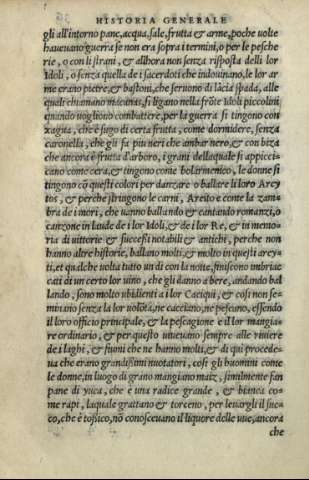 HISTORIA GENERALE
gli all'intorno pane, acqua, sale, frutta & arme, poche volte
haueuano guerra se non era sopra i termini, o per le pesche
rie, o con li strani, & allhora non senza risposta delli lor
Idoli, o senza quella de i sacerdoti che indouinano, le lor ar
me erano pietre, & bastoni, che seruono di lācia spada, alle
quali chiamano macanas, si ligano nella frōte Idoli piccolini
quando uogliono combattere, per la guerra si tingono con
xagua, che è sugo di certa frutta, come dormidere, senza
caronella, che gli fa piu neri che ambar nero, & con bixa
che ancora è frutta d'arboro, i grani dellaquale si appicci-
cano come cera, & tingono come bolarmenico, le donne si
tingono cō questi colori per danzare o ballare li loro Arey
tos, & perche stringono le carni, Areito è come la zam-
bra de i mori, che uanno ballando & cantando romanzi, o
canzone in laude de i lor Idoli, & de i lor Re, & in memo-
ria di uittorie & successi notabili & antichi, perche non
hanno altre historie, ballano molti, & molto in questi arey-
ti, et qualche uolta tutto un dì con la notte, finiscono imbriac
cati di un certo lor uino, che gli danno a bere, andando bal
lando, sono molto ubidienti a i lor Caciqui, & cosi non se-
minano senza la lor uolōta, ne cacciano, ne pescano, essendo
il loro officio principale, & la pescagione e il lor mangia-
re ordinario, & per questo uiueuano sempre alle riuiere
de i laghi, & fiumi che ne hanno molti, & di qui procede-
ua che erano grandissimi nuotatori, cosi gli huomini come
le donne, in luogo di grano mangiano maiz, similmente fan
pane di yuca, che è una radice grande, & bianca co-
me rapi, laquale grattano & torceno, per leuargli il suc-
co, che è tossico, nō conosceuano il liquore delle uue, ancora
che